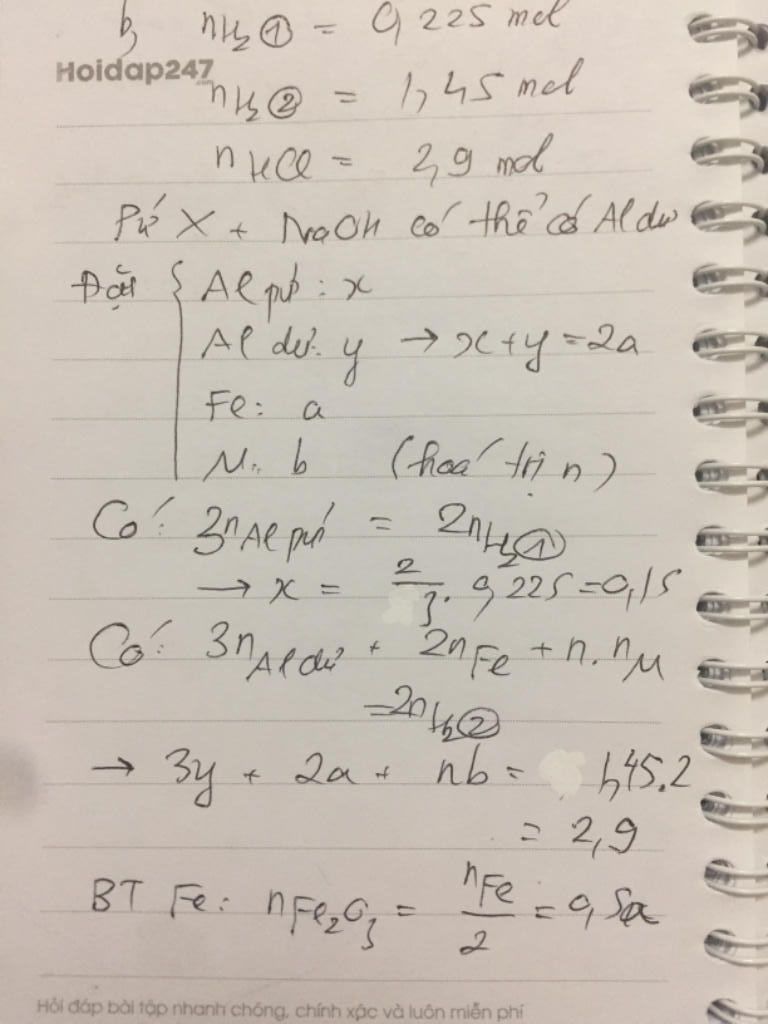 b, nH2 ① = 0,225 mol
Hoidap247.com
nH2 ② = 1,45 mol
nHCl = 2,9 mol
Pứ X + NaOH có thể có Al dư
Đặt { Al pứ : x
Al dư: y → x+y = 2a
Fe: a
M: b (hoá trị n)
Có: 3nAl pứ = 2nH2 ①
→ x = 2/3 . 0,225 = 0,15
Có: 3nAl dư + 2nFe + n.nM
= 2nH2 ②
→ 3y + 2a + nb = 1,45.2
= 2,9
BT Fe: nFe2O3 = nFe/2 = 0,5a
Hỏi đáp bài tập nhanh chóng, chính xác và luôn miễn phí